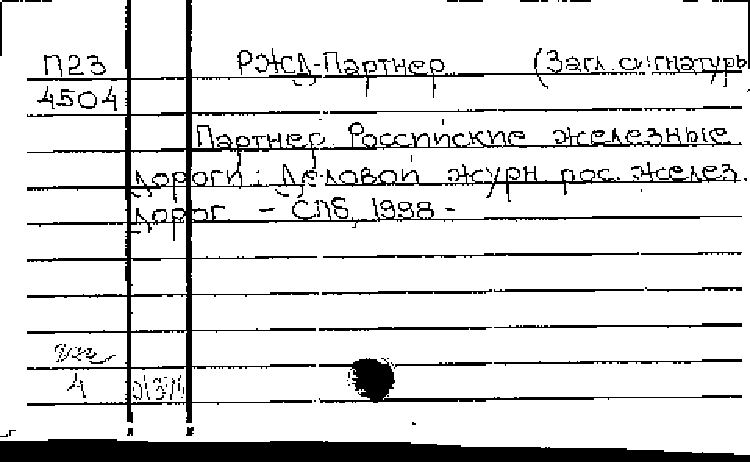 П23 РЖД-Партнер (Загл. сигнатуры
4504
Партнер. Российские железные
дороги: Деловой журн. рос. желез.
дорог. - СПб, 1998 -
4